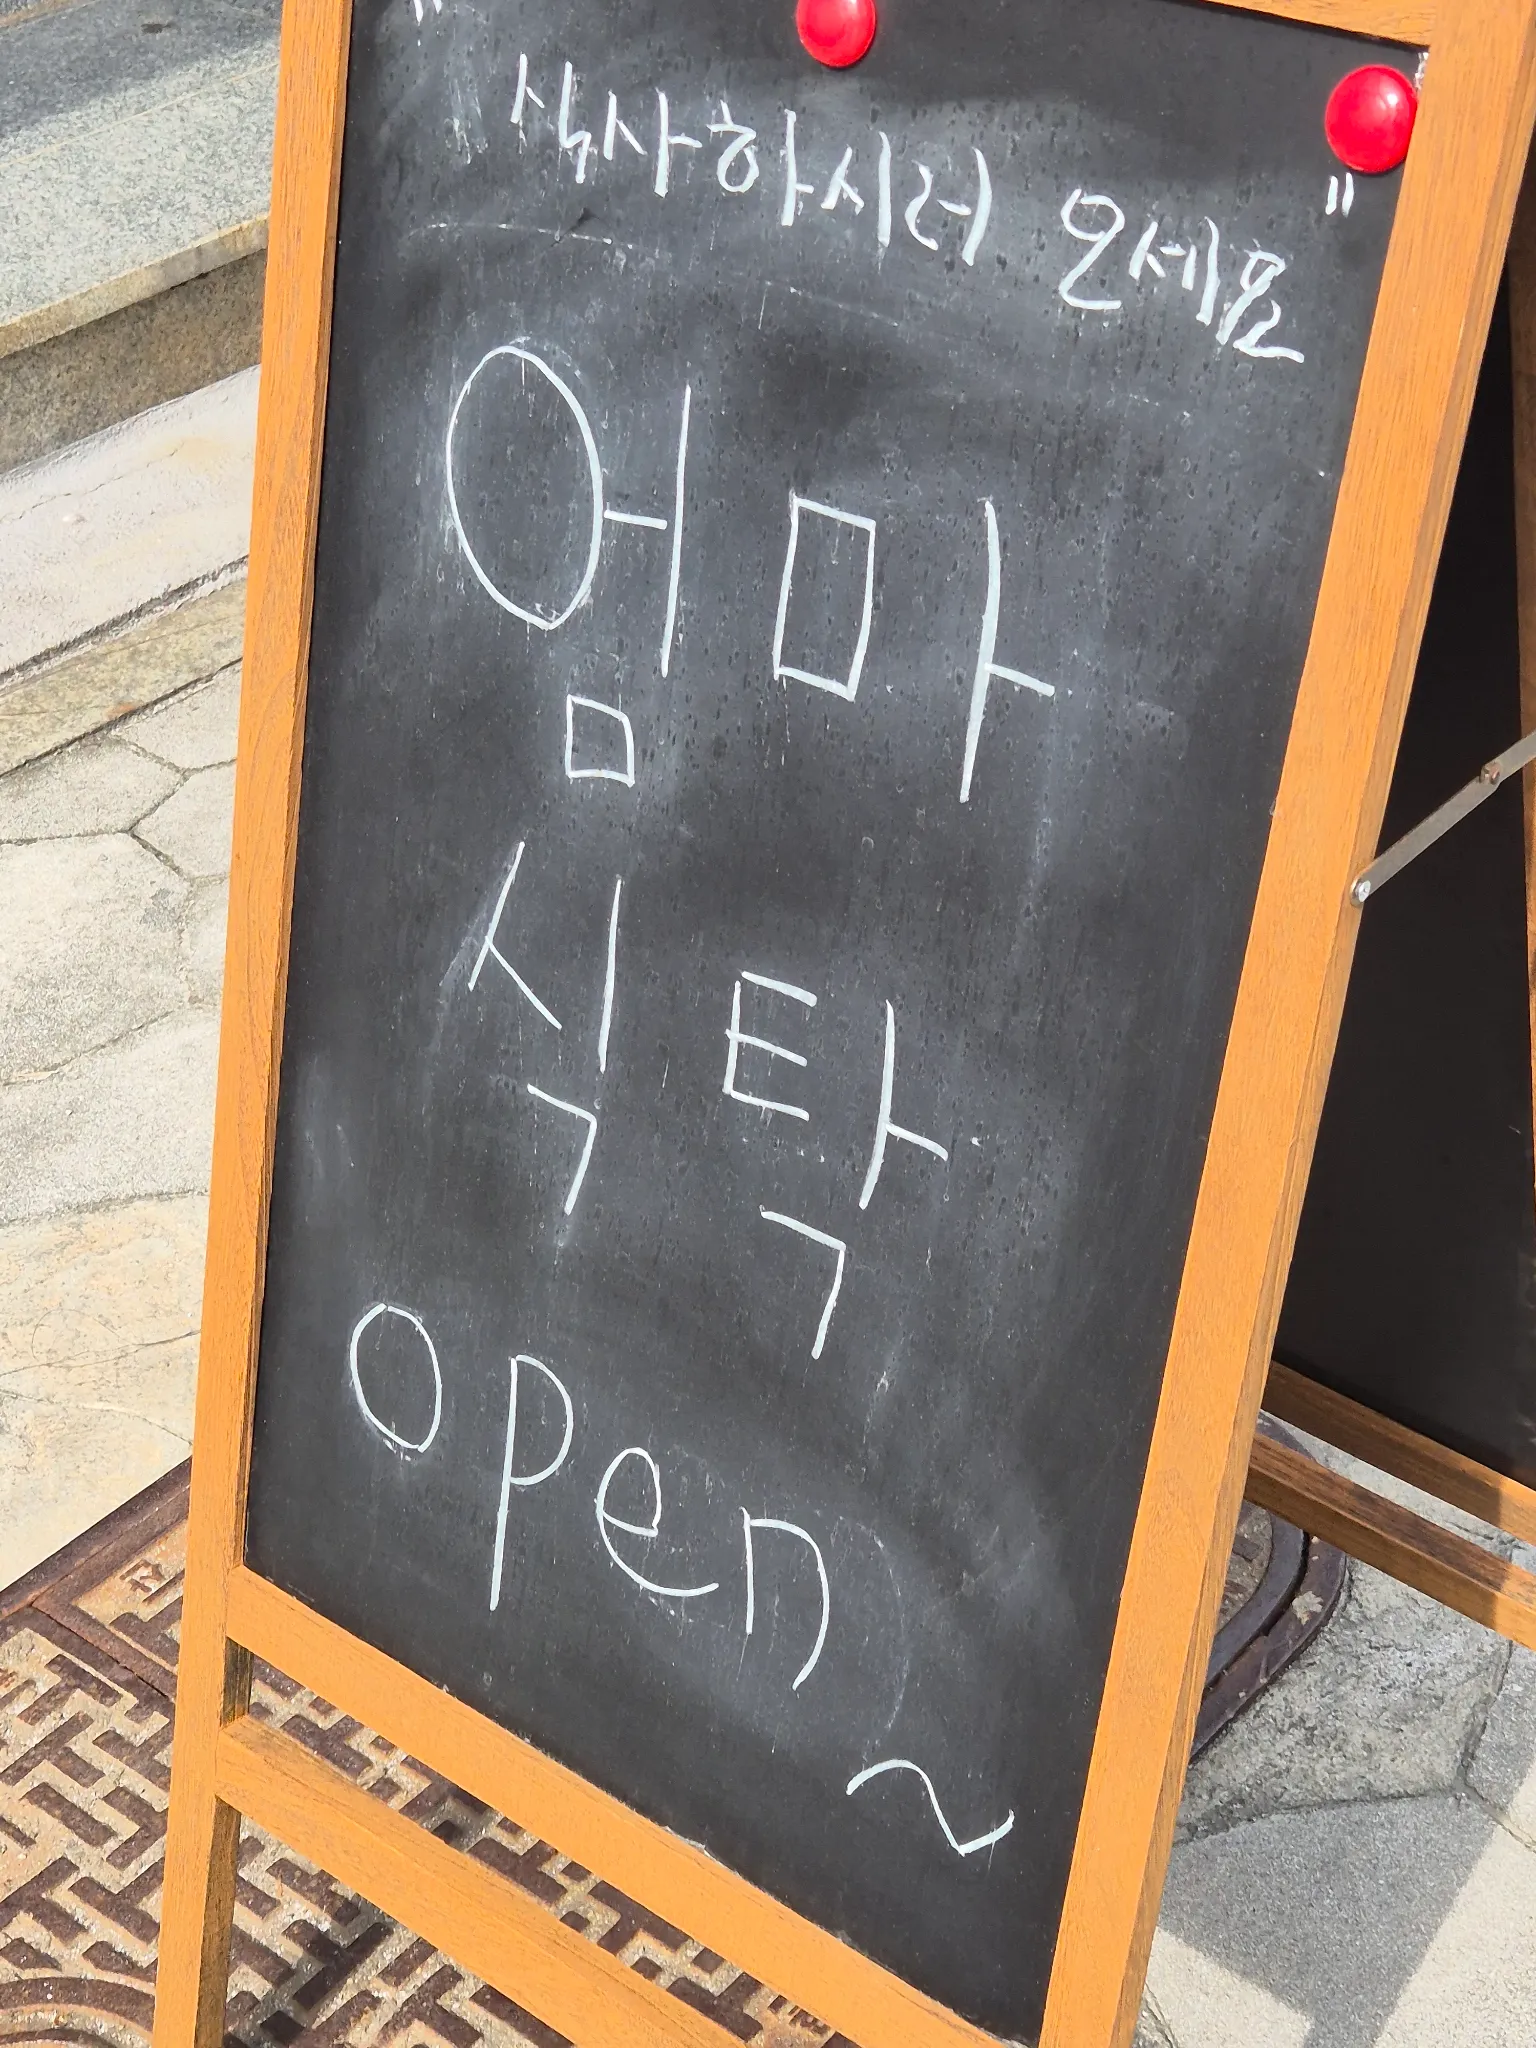 "식사하시러 오세요"
엄마
식탁
open~